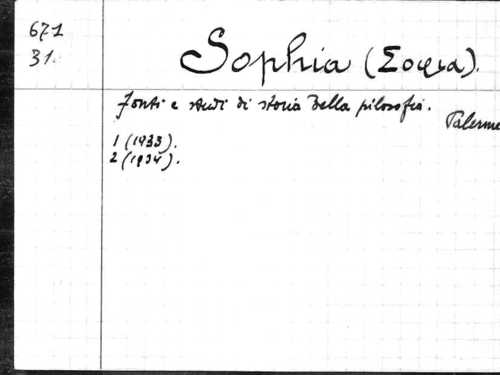 671
31.
Sophia (Σοφια).
Fonti e studi di storia della filosofia.
Palermo
1 (1933).
2 (1934).